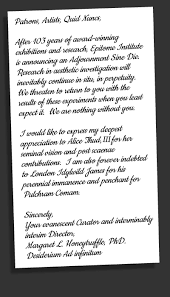 Patrons, Artists, Quid Nunes,
After 103 years of award-winning
exhibitions and research, Epitome Institute
is announcing an Adjournment Sine Die.
Research in aesthetic investigation will
inevitably continue in situ, in perpetuity.
We threaten to return to you with the
results of these experiments when you least
expect it. We are nothing without you.
I would like to express my deepest
appreciation to Alice Thud, III for her
seminal vision and post scaenae
contributions. I am also forever indebted
to London Idykvild James for his
perennial immanence and penchant for
Pulchram Comam.
Sincerely,
Your evanescent Curator and interminably
interim Director,
Margaret L. Honeytruffle, PhD.
Desiderium Ad infinitum